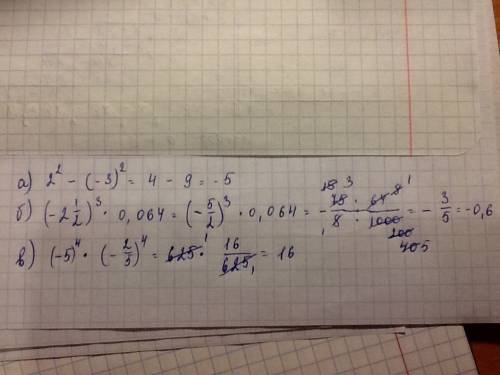 а) 2² - (-3)² = 4 - 9 = -5
б) (-2 1/2)³ · 0,064 = (-5/2)³ · 0,064 = - 78 · 64 / 8 · 1000 = - 3/5 = -0,6
в) (-5)⁴ · (-2/5)⁴ = 625 · 16/625 = 16